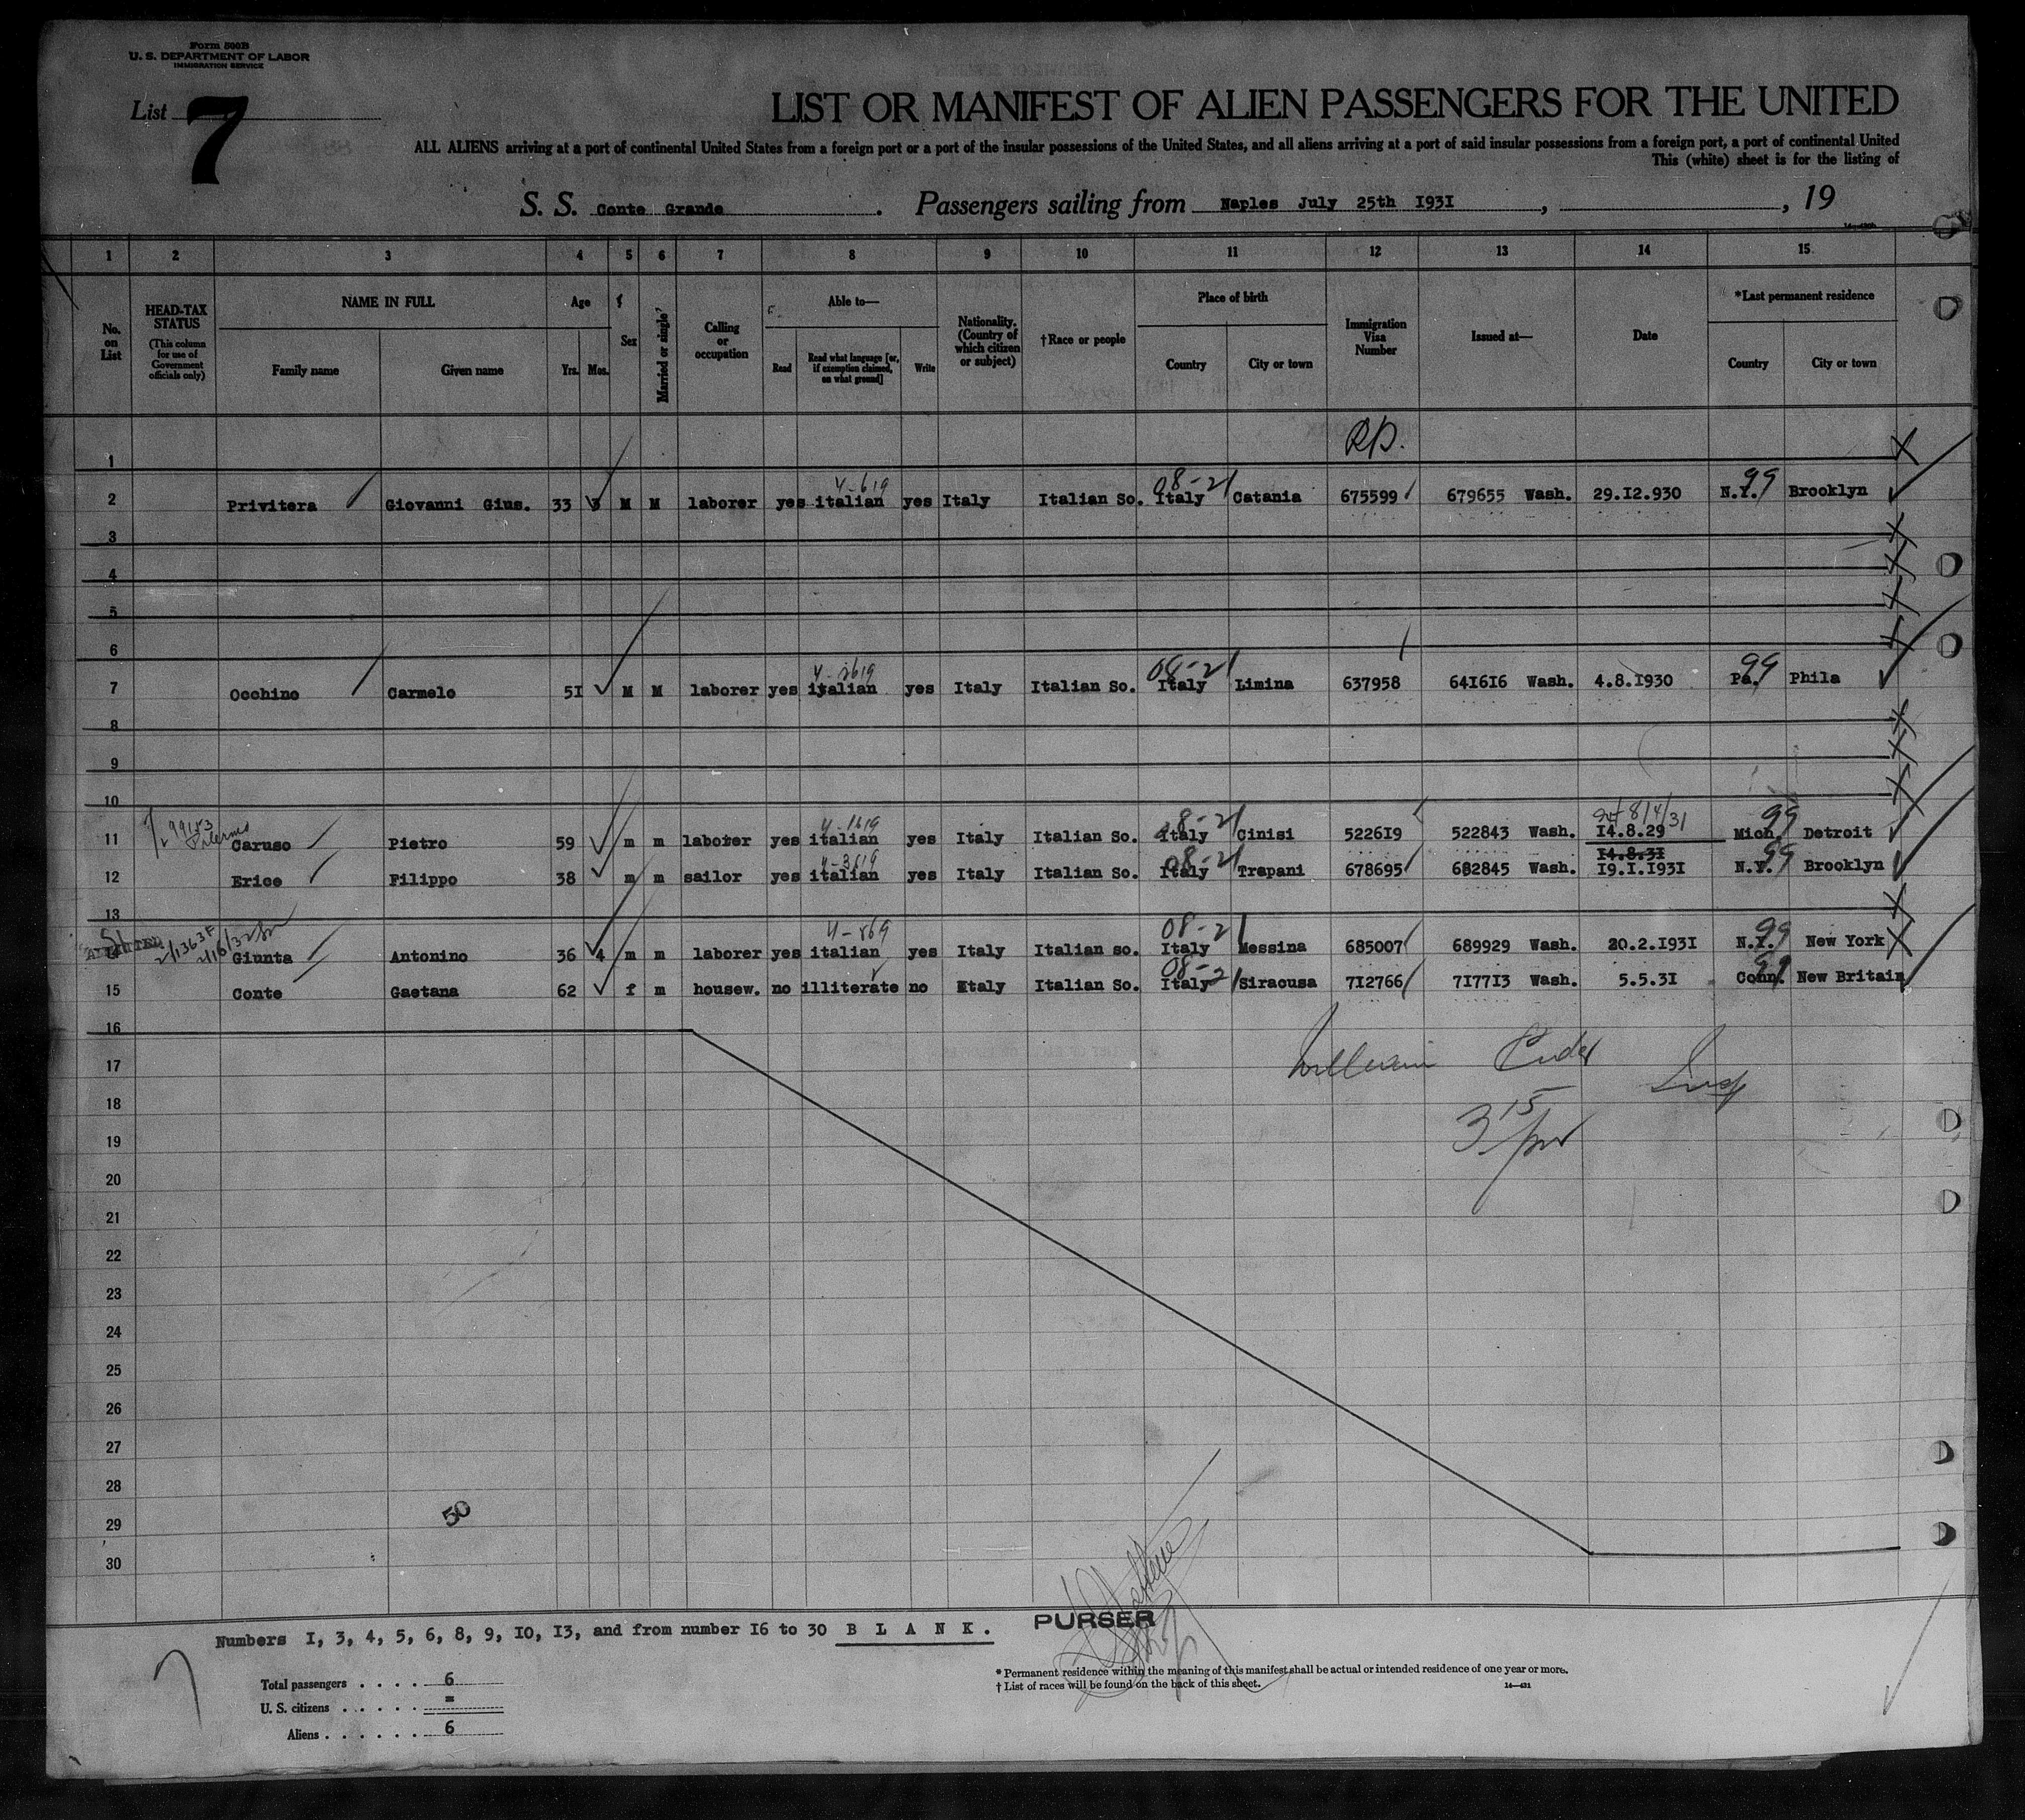 Form 500B
U. S. DEPARTMENT OF LABOR
IMMIGRATION SERVICE
List 7
LIST OR MANIFEST OF ALIEN PASSENGERS FOR THE UNITED
ALL ALIENS arriving at a port of continental United States from a foreign port or a port of the insular possessions of the United States, and all aliens arriving at a port of said insular possessions from a foreign port, a port of continental United
This (white) sheet is for the listing of
S. S. Conte Grande. Passengers sailing from Naples July 25th 1931, , 19
1 2 3 4 5 6 7 8 9 10 11 12 13 14 15
No. on List
HEAD-TAX STATUS
(This column for use of Government officials only)
NAME IN FULL
Family name Given name
Age
Yrs. Mos.
Sex
Married or single
Calling or occupation
Able to—
Read Read what language [or, if exemption claimed, on what ground] Write
Nationality. (Country of which citizen or subject)
†Race or people
Place of birth
Country City or town
Immigration Visa Number
Issued at—
Date
*Last permanent residence
Country City or town
1 R.P.
4-619 08-21 99
2 Privitera Giovanni Gius. 33 3 M M laborer yes italian yes Italy Italian So. Italy Catania 675599 679655 Wash. 29.12.930 N.Y. Brooklyn
3
4
5
6
08-21 99
7 Occhino Carmelo 51 M M laborer yes italian yes Italy Italian So. Italy Limina 637958 641616 Wash. 4.8.1930 Pa. Phila
8
9
10
99153 Palermo 4-1619 08-21 8/4/31 99
11 Caruso Pietro 59 m m laborer yes italian yes Italy Italian So. Italy Cinisi 522619 522843 Wash. 14.8.29 Mich. Detroit
4-3619 08-21 14.8.31 99
12 Erice Filippo 38 m m sailor yes italian yes Italy Italian So. Italy Trapani 678695 682845 Wash. 19.1.1931 N.Y. Brooklyn
13
4-869 08-21 99
Giunta Antonino 36 4 m m laborer yes italian yes Italy Italian so. Italy Messina 685007 689929 Wash. 20.2.1931 N.Y. New York
08-21 99
15 Conte Gaetana 62 f m housew. no illiterate no Italy Italian So. Italy Siracusa 712766 717713 Wash. 5.5.31 Conn. New Britain
16
William Insp
17
18
3 15 pm
19
20
21
22
23
24
25
26
27
28
50
29
30
Numbers 1, 3, 4, 5, 6, 8, 9, 10, 13, and from number 16 to 30 B L A N K.
PURSER
7
Total passengers . . . . . 6
U. S. citizens . . . . . . =
Aliens . . . . . . 6
* Permanent residence within the meaning of this manifest shall be actual or intended residence of one year or more.
† List of races will be found on the back of this sheet.
14—431